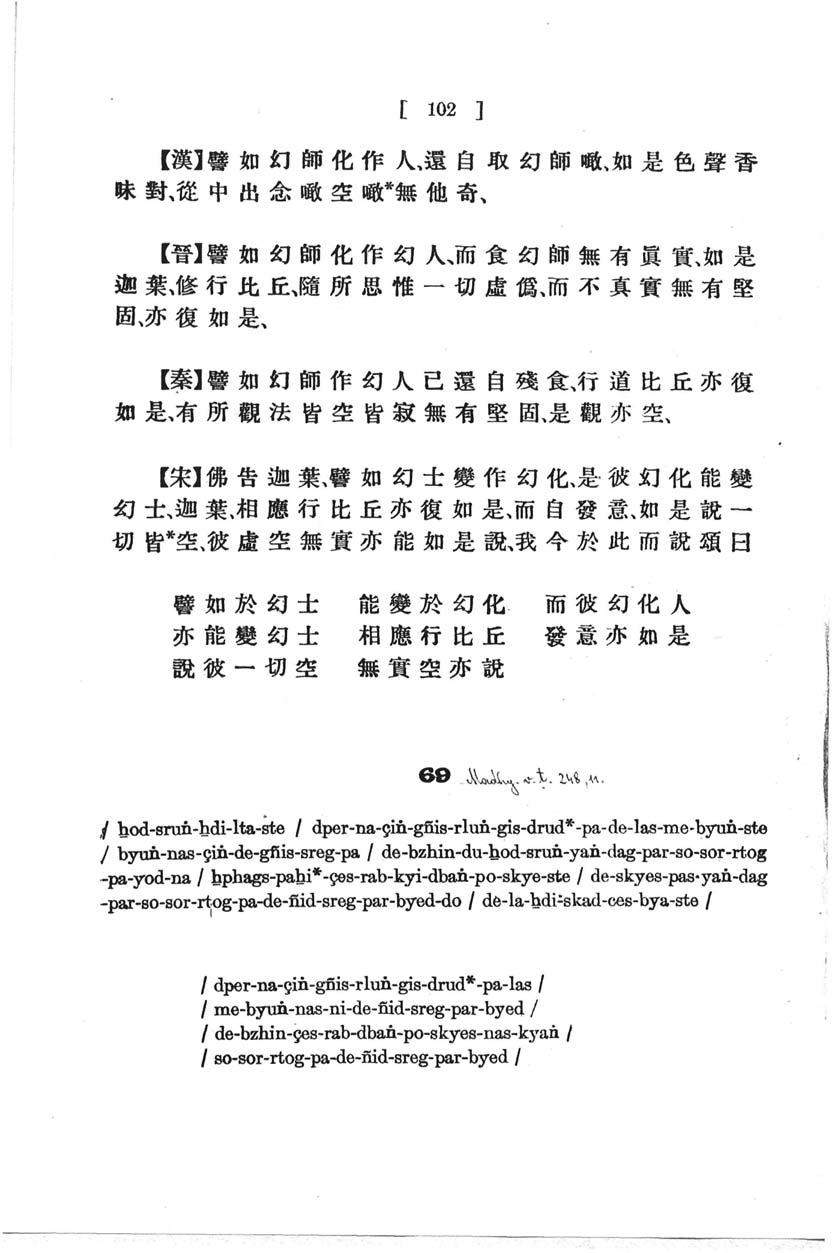 [ 102 ]
【漢】譬如幻師化作人、還自取幻師噉、如是色聲香
味對、從中出念噉空噉*無他奇、
【晉】譬如幻師化作幻人、而食幻師無有眞實、如是
迦葉、修行比丘、隨所思惟一切虛僞、而不真實無有堅
固、亦復如是、
【秦】譬如幻師作幻人已還自殘食、行道比丘亦復
如是、有所觀法皆空皆寂無有堅固、是觀亦空、
【宋】佛告迦葉、譬如幻士變作幻化、是彼幻化能變
幻士、迦葉、相應行比丘亦復如是、而自發意、如是說一
切皆*空、彼虛空無實亦能如是說、我今於此而說頌曰
譬如於幻士 能變於幻化 而彼幻化人
亦能變幻士 相應行比丘 發意亦如是
說彼一切空 無實空亦說
69 Madhy. v. ṭ. 248, 11.
/ ẖod-sruṅ-ẖdi-lta-ste / dper-na-çiṅ-gñis-rluṅ-gis-drud*-pa-de-las-me-byuṅ-ste
/ byuṅ-nas-çiṅ-de-gñis-sreg-pa / de-bzhin-du-ẖod-sruṅ-yaṅ-dag-par-so-sor-rtog
-pa-yod-na / ẖphags-paẖi*-çes-rab-kyi-dbaṅ-po-skye-ste / de-skyes-pas-yaṅ-dag
-par-so-sor-rtog-pa-de-ñid-sreg-par-byed-do / de-la-ẖdi-skad-ces-bya-ste /
/ dper-na-çiṅ-gñis-rluṅ-gis-drud*-pa-las /
/ me-byuṅ-nas-ni-de-ñid-sreg-par-byed /
/ de-bzhin-çes-rab-dbaṅ-po-skyes-nas-kyaṅ /
/ so-sor-rtog-pa-de-ñid-sreg-par-byed /